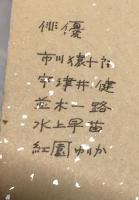 俳優
市川猿十郎
宇津井健
並木一路
水上早苗
紅園ゆりか